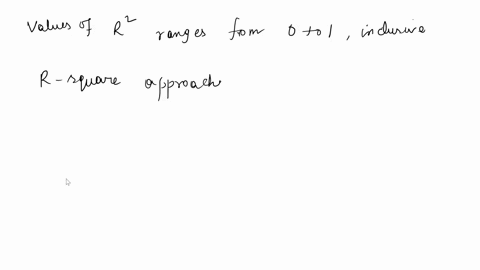 Values of R² ranges from 0 to 1, inclusive
R-square approach